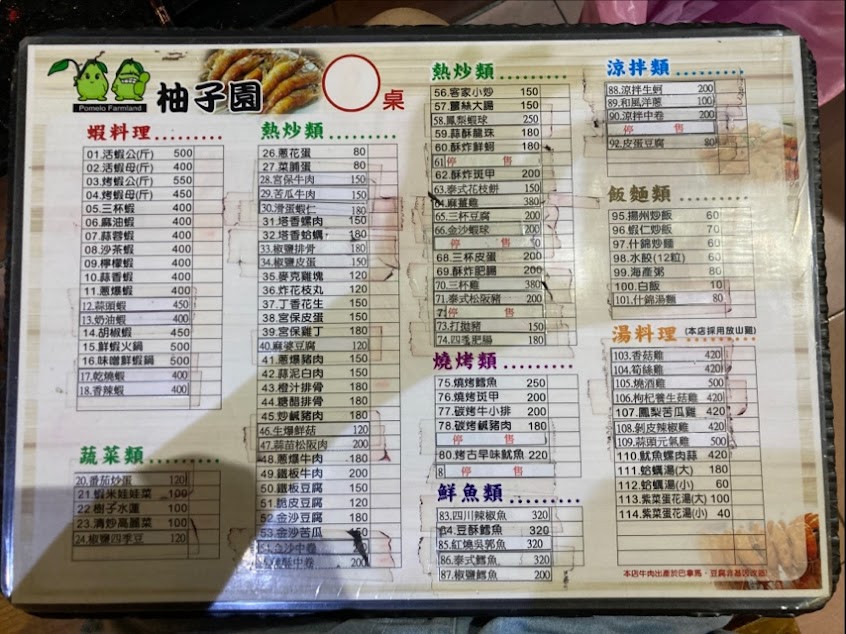 Pomelo Farmland
柚子園
桌
蝦料理
01.活蝦公(斤) 500
02.活蝦母(斤) 400
03.烤蝦公(斤) 550
04.烤蝦母(斤) 450
05.三杯蝦 400
06.麻油蝦 400
07.蒜蓉蝦 400
08.沙茶蝦 400
09.檸檬蝦 400
10.蒜香蝦 400
11.蔥爆蝦 400
12.蒜頭蝦 450
13.奶油蝦 400
14.胡椒蝦 450
15.鮮蝦火鍋 500
16.味噌鮮蝦鍋 500
17.乾燒蝦 400
18.香辣蝦 400
蔬菜類
20.番茄炒蛋 120
21.蝦米娃娃菜 100
22.樹子水蓮 100
23.清炒高麗菜 100
24.椒鹽四季豆 120
熱炒類
26.蔥花蛋 80
27.菜脯蛋 80
28.宮保牛肉 150
29.苦瓜牛肉 150
30.滑蛋蝦仁 180
31.塔香螺肉 150
32.塔香蛤蠣 180
33.椒鹽排骨 180
34.椒鹽皮蛋 150
35.麥克雞塊 120
36.炸花枝丸 120
37.丁香花生 150
38.宮保皮蛋 150
39.宮保雞丁 180
40.麻婆豆腐 120
41.蔥爆豬肉 150
42.蒜泥白肉 150
43.橙汁排骨 180
44.糖醋排骨 180
45.炒鹹豬肉 180
46.生爆鮮菇 120
47.蒜苗松阪肉 200
48.蔥爆牛肉 180
49.鐵板牛肉 200
50.鐵板豆腐 150
51.脆皮豆腐 120
52.金沙豆腐 180
53.金沙苦瓜 150
金沙中卷 200
中卷 200
熱炒類
56.客家小炒 150
57.薑絲大腸 150
58.鳳梨蝦球 250
59.蒜酥龍珠 180
60.酥炸鮮蚵 180
61 停 售
62.酥炸斑甲 200
63.泰式花枝餅 150
64.麻薑雞 380
65.三杯豆腐 200
66.金沙蝦球 200
停 售 0
68.三杯皮蛋 200
69.酥炸肥腸 200
70.三杯雞 380
71.泰式松阪豬 200
7 停 售
73.打拋豬 150
74.四季肥腸 180
燒烤類
75.燒烤鱈魚 250
76.燒烤斑甲 200
77.碳烤牛小排 200
78.碳烤鹹豬肉 180
停 售
80.烤古早味魷魚 220
8 停 售
鮮魚類
83.四川辣椒魚 320
84.豆酥鱈魚 320
85.紅燒吳郭魚 320
86.泰式鱈魚 320
87.椒鹽鱈魚 200
涼拌類
88.涼拌生蚵 200
89.和風洋蔥 100
90.涼拌中卷 200
停 售
92.皮蛋豆腐 80
飯麵類
95.揚州炒飯 60
96.蝦仁炒飯 70
97.什錦炒麵 60
98.水餃(12粒) 60
99.海產粥 80
100.白飯 10
101.什錦湯麵 80
湯料理 (本店採用放山雞)
103.香菇雞 420
104.筍絲雞 420
105.燒酒雞 500
106.枸杞養生菇雞 420
107.鳳梨苦瓜雞 420
108.剝皮辣椒雞 420
109.蒜頭元氣雞 500
110.魷魚螺肉蒜 420
111.蛤蠣湯(大) 180
112.蛤蠣湯(小) 60
113.紫菜蛋花湯(大) 100
114.紫菜蛋花湯(小) 40
本店牛肉出產於巴拿馬、豆腐非基因改造